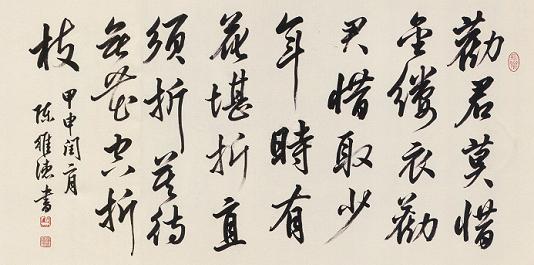 勸君莫惜
金縷衣勸
君惜取少
年時有
花堪折直
須折莫待
無花空折
枝
甲申閏二月
陳維德書